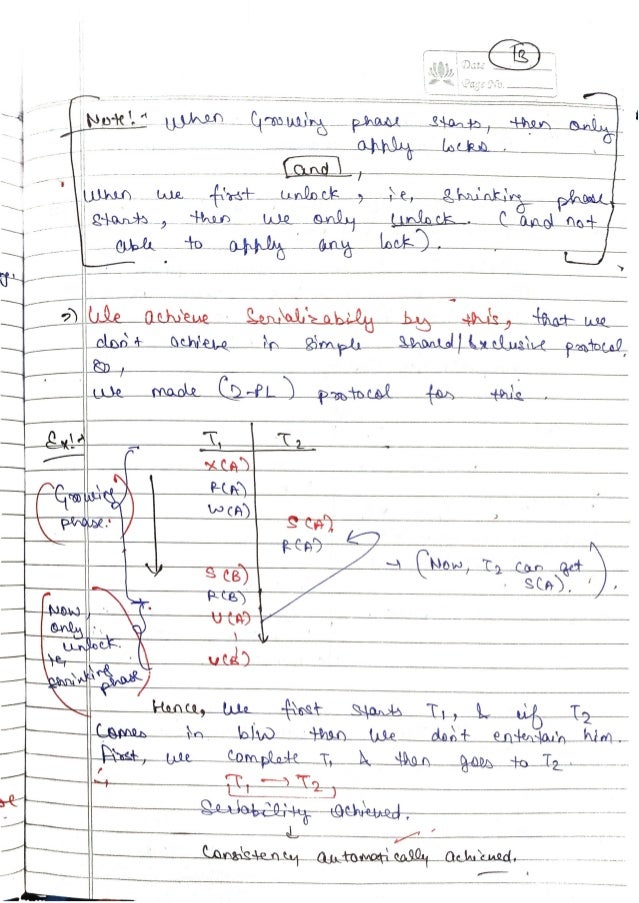 13
Date
Page No.
Note:- When Growing phase starts, then only
apply locks.
and,
When we first unlock, ie, Shrinking phase
starts, then we only unlock. (and not
able to apply any lock).
=) We achieve Serializabily by this, that we
don't achieve in simple shared/Exclusive protocol.
so,
we made (2-PL) protocol for this.
Ex:- T1 T2
X(A)
R(A)
W(A)
Growing
phase.
S(A)
R(A)
→ (Now, T2 can get
S(A).)
S(B)
R(B)
U(A)
U(B)
Now,
only
unlock.
ie,
shrinking
phase
Hence, we first starts T1, & if T2
comes in b/w then we don't entertain him.
First, we complete T1 & then goes to T2.
T1 → T2,
Seriability achieved.
↓
Consistency automatically achieved.